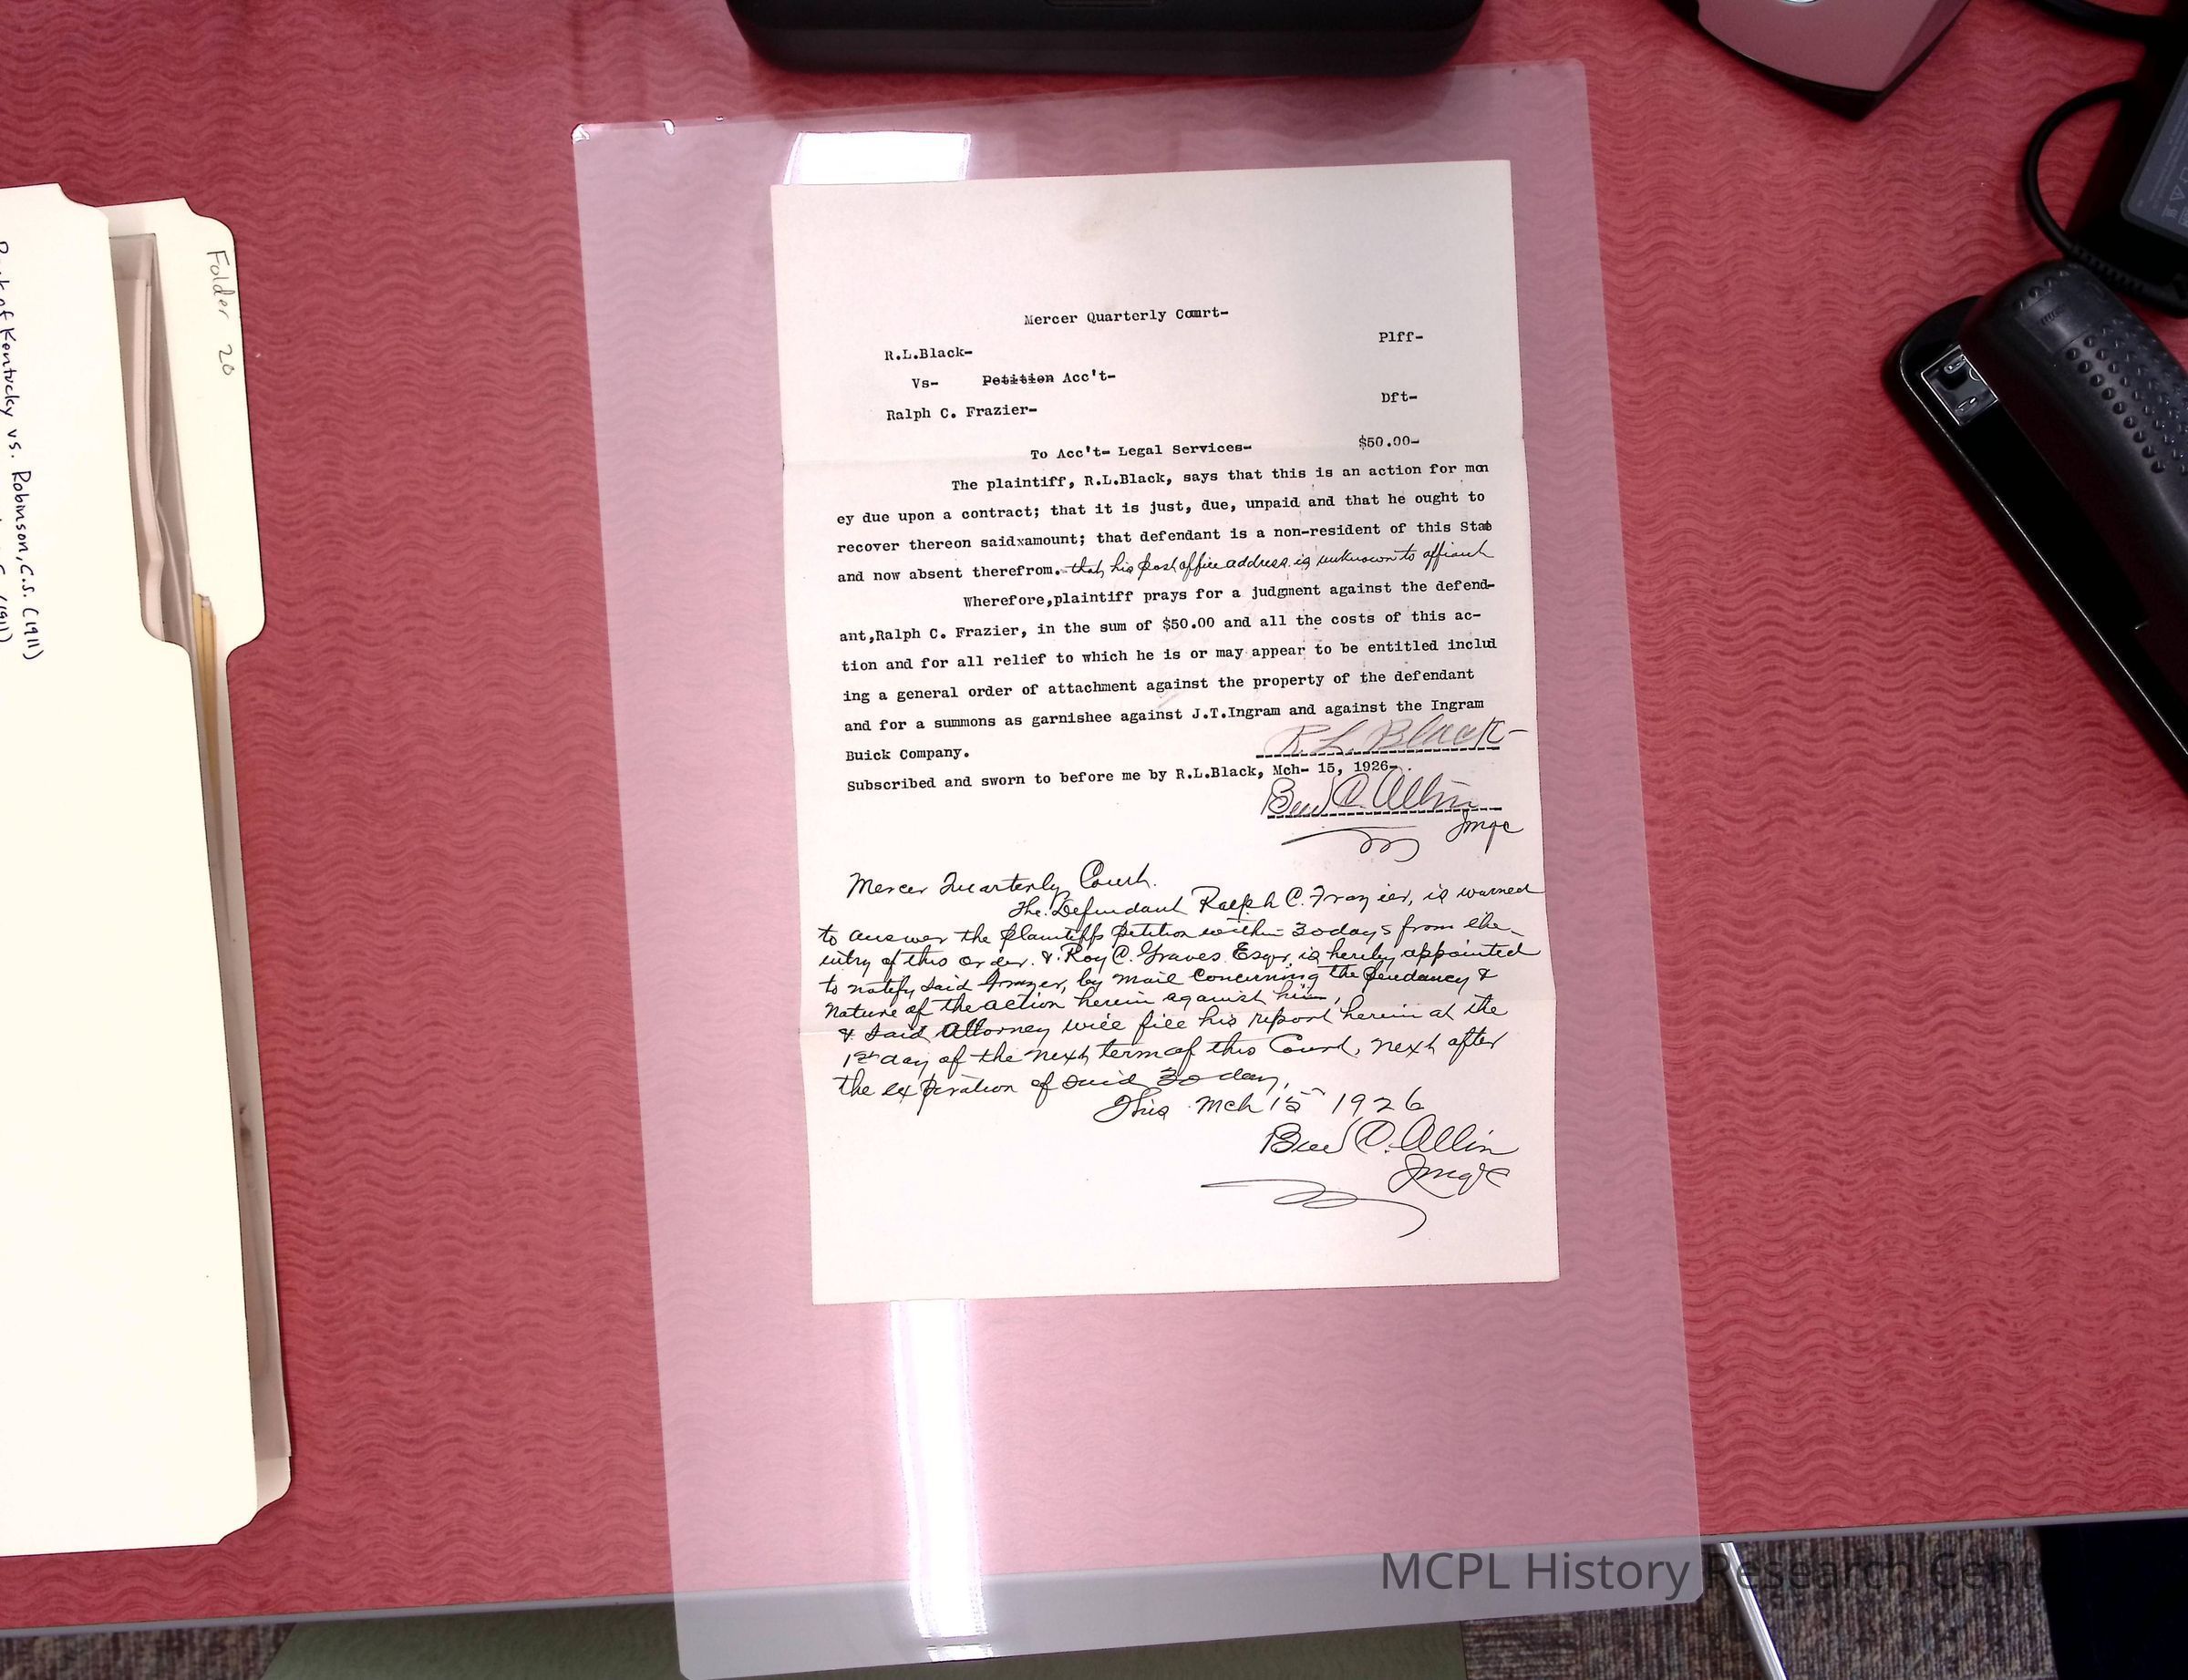 Mercer Quarterly Court-
Plff-
R.L.Black-
Vs- Petition Acc't-
Dft-
Ralph C. Frazier-
To Acc't- Legal Services- $50.00-
The plaintiff, R.L.Black, says that this is an action for mon
ey due upon a contract; that it is just, due, unpaid and that he ought to
recover thereon saidxamount; that defendant is a non-resident of this State
and now absent therefrom. that his post office address is unknown to affiant
Wherefore,plaintiff prays for a judgment against the defend-
ant,Ralph C. Frazier, in the sum of $50.00 and all the costs of this ac-
tion and for all relief to which he is or may appear to be entitled includ
ing a general order of attachment against the property of the defendant
and for a summons as garnishee against J.T.Ingram and against the Ingram
Buick Company.
R L Black-
Subscribed and sworn to before me by R.L.Black, Mch- 15, 1926-
Ben C. Allin
Jmqc
Mercer Quarterly Court.
The Defendant Ralph C. Frazier, is warned
to answer the plaintiffs petition within 30 days from the
entry of this order. & Roy C. Graves Esqr, is hereby appointed
to notify said Frazier, by mail concerning the pendancy &
nature of the action herein against him,
& said Attorney will file his report herein at the
1st day of the next term of this Court, next after
the expiration of said 30 day,
This Mch 15 1926
Ben C. Allin
Jmqc
Folder 20
of Kentucky vs. Robinson, C.S. (1911)
(1911)
MCPL History Research Cent